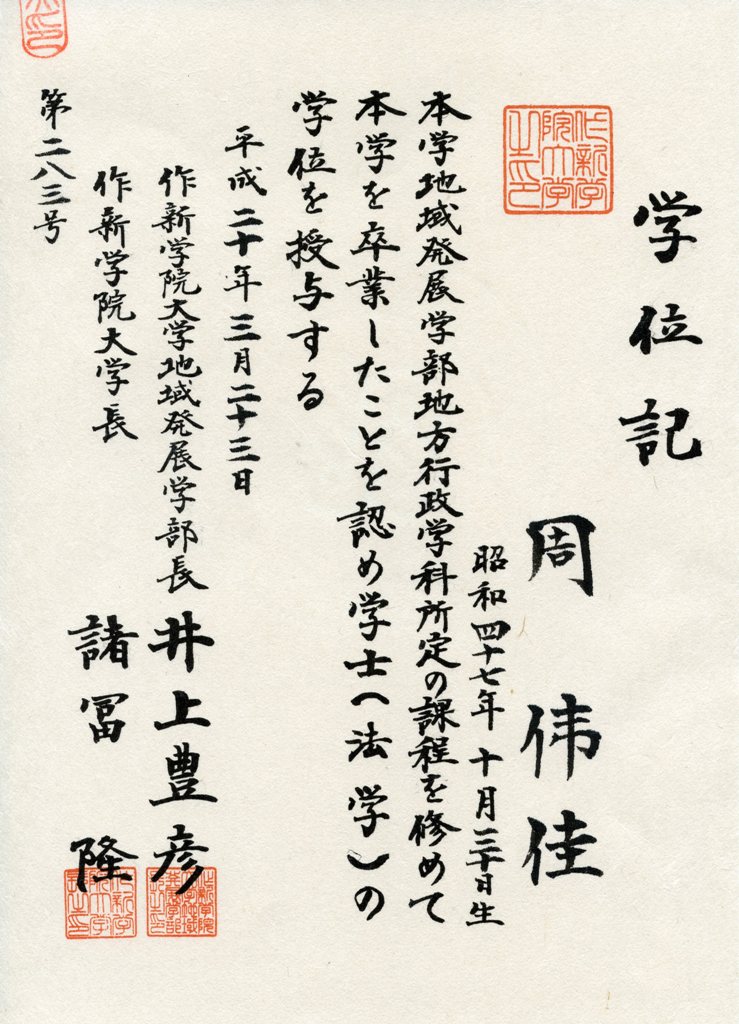 学位記
周伟佳
昭和四十七年十月三十日生
本学地域発展学部地方行政学科所定の課程を修めて
本学を卒業したことを認め学士(法学)の
学位を授与する
平成二十年三月二十三日
作新学院大学地域発展学部長 井上豊彦
作新学院大学長 諸冨隆
第二八三号
作新学院大学之印